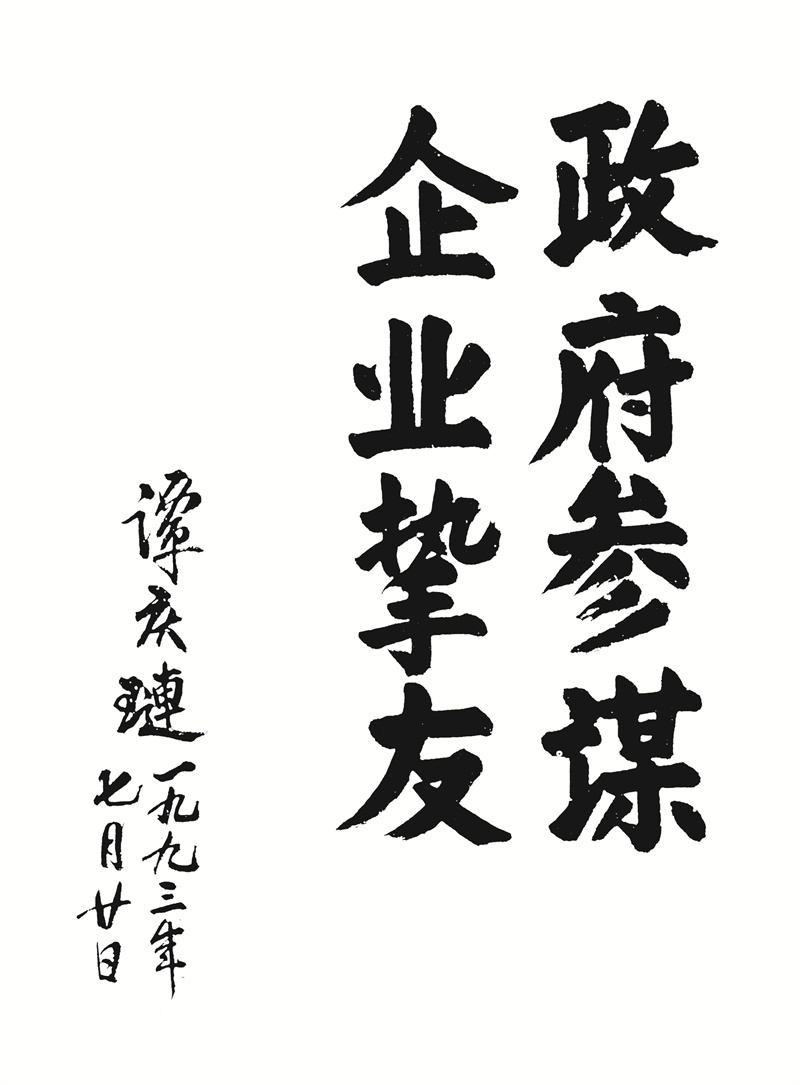 政府参谋
企业挚友
谭庆琏
一九九三年
七月廿日